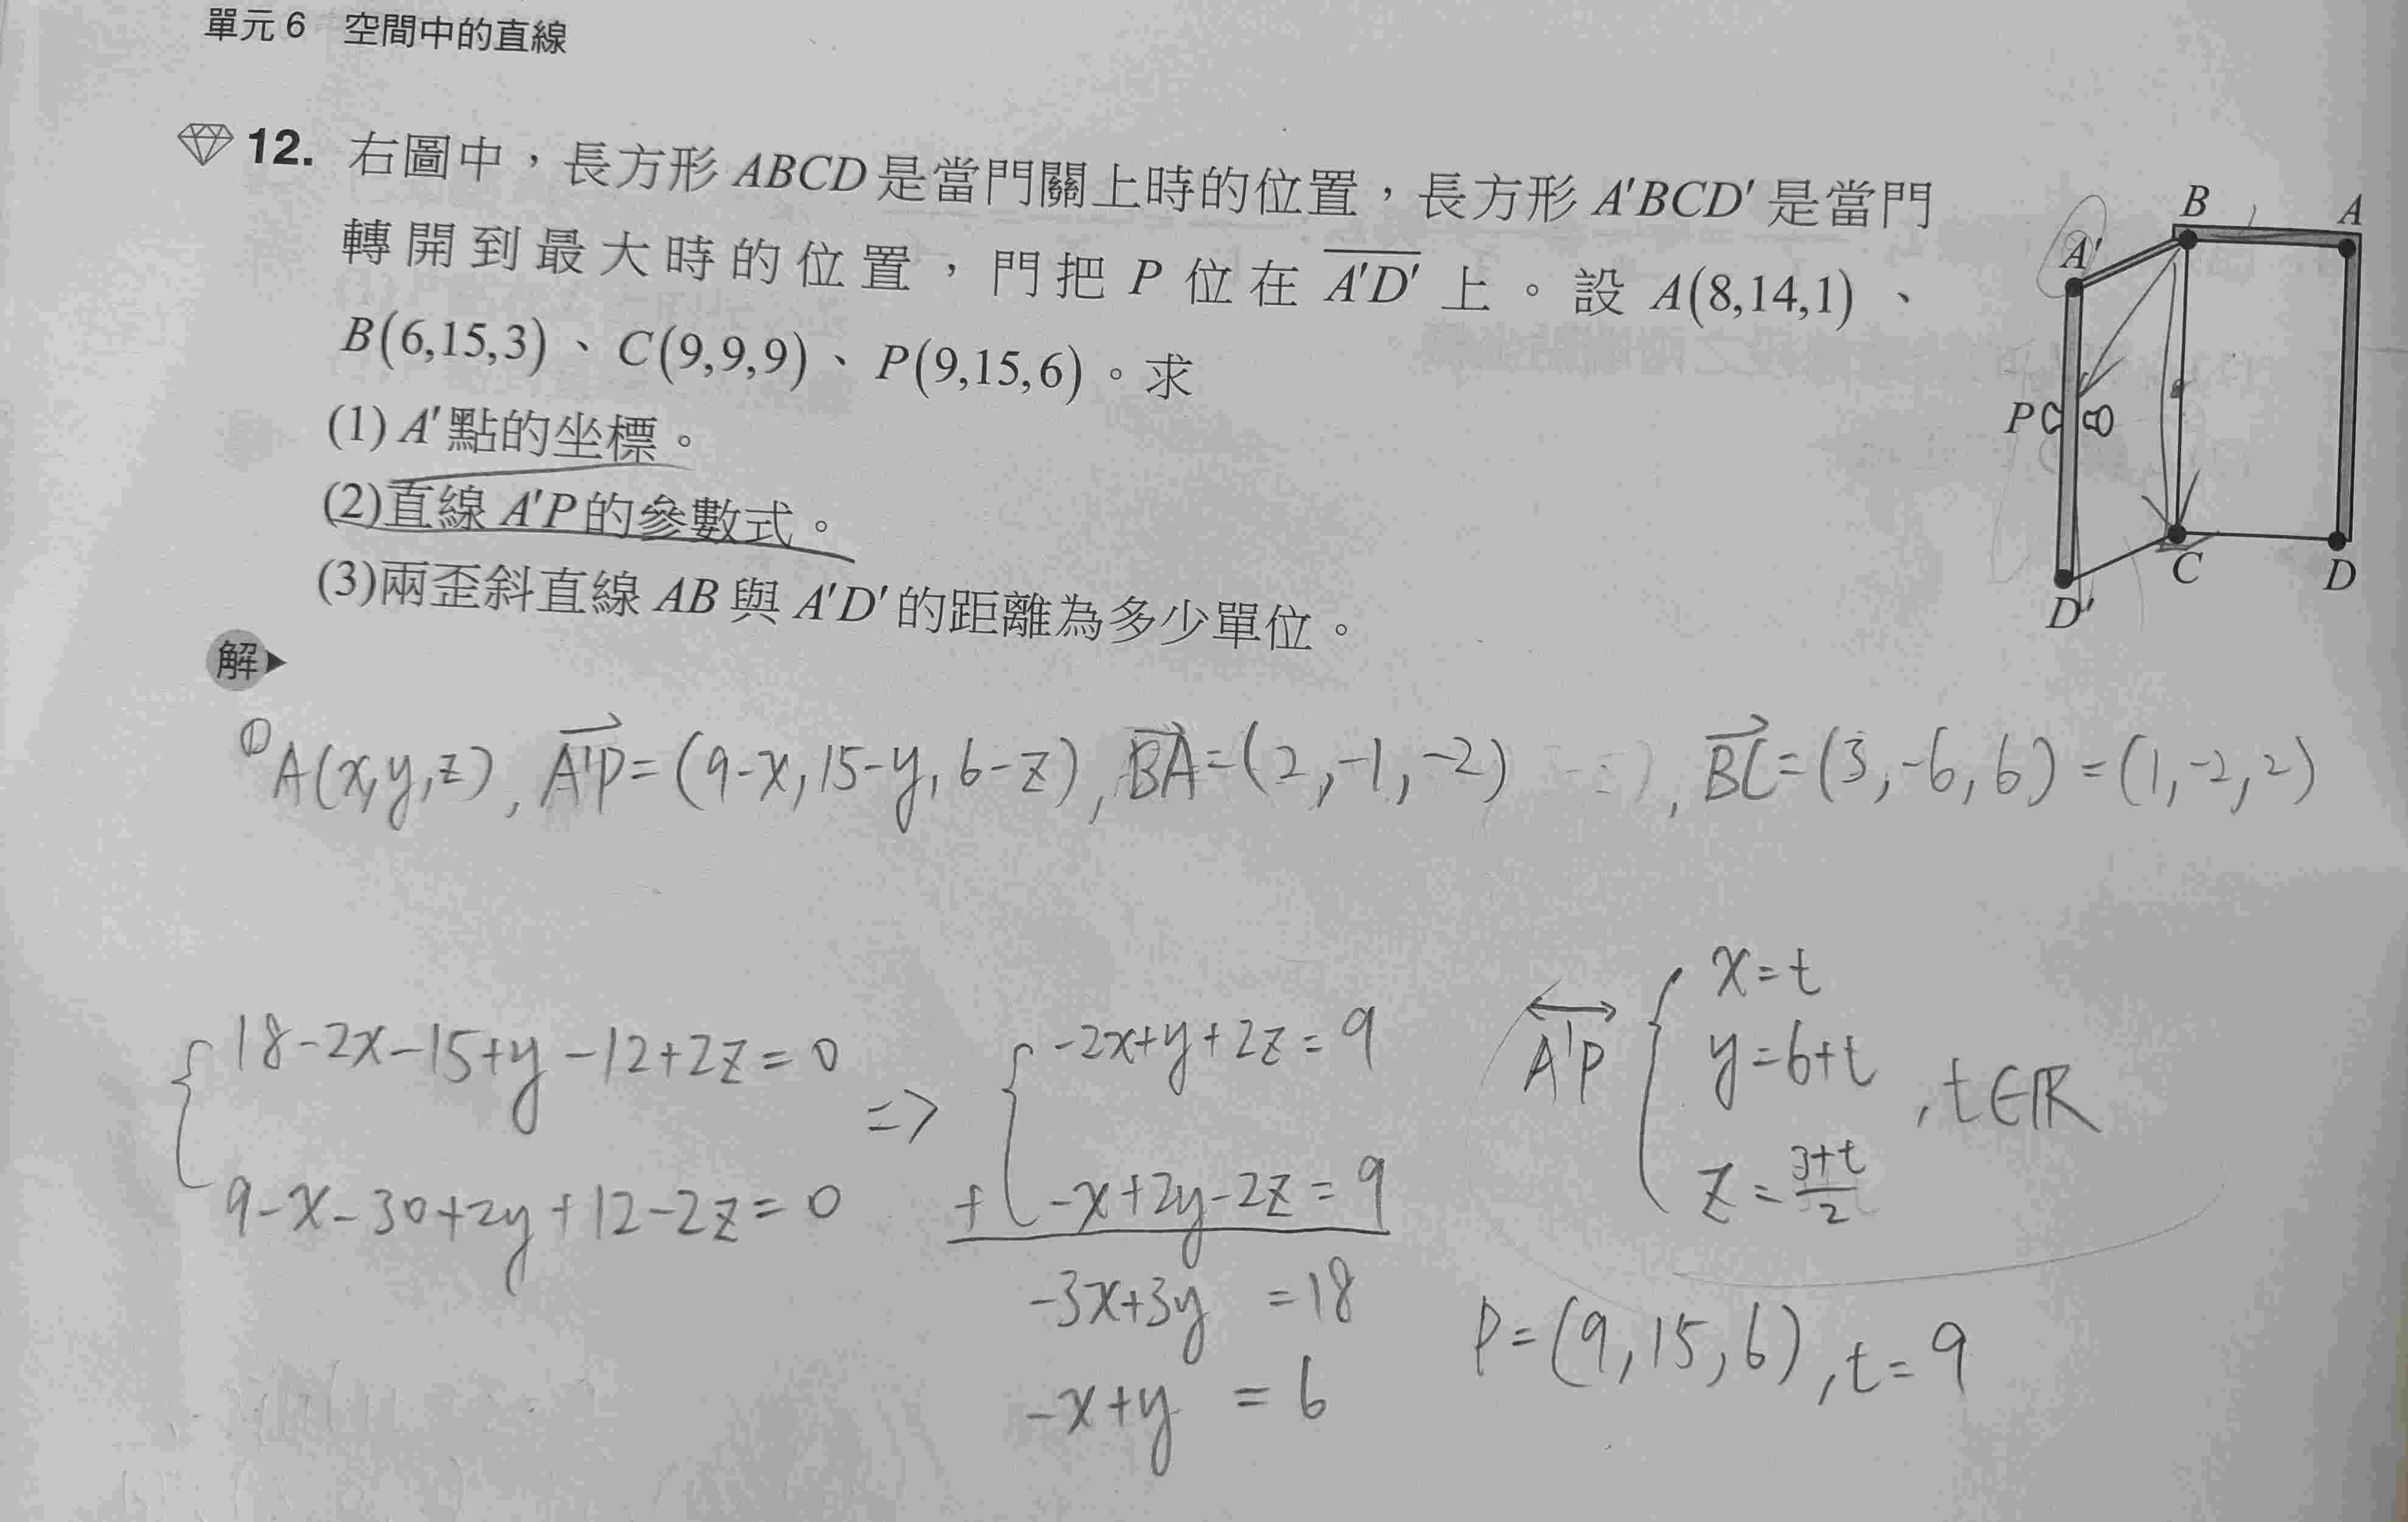 單元 6 空間中的直線
12. 右圖中，長方形 ABCD 是當門關上時的位置，長方形 A'BCD' 是當門
轉開到最大時的位置，門把 P 位在 A'D' 上。設 A(8,14,1)、
B(6,15,3)、C(9,9,9)、P(9,15,6)。求
(1) A' 點的坐標。
(2)直線 A'P 的參數式。
(3)兩歪斜直線 AB 與 A'D' 的距離為多少單位。
B
A
A'
P
C
D
D'
解
① A(x,y,z), A'P=(9-x,15-y,6-z), BA=(2,-1,-2), BC=(3,-6,6)=(1,-2,2)
{ 18-2x-15+y-12+2z=0
9-x-30+2y+12-2z=0
=> { -2x+y+2z=9
+ -x+2y-2z=9
-3x+3y =18
-x+y =6
A'P { x=t
y=6+t , t∈R
z=3+t/2
P=(9,15,6), t=9